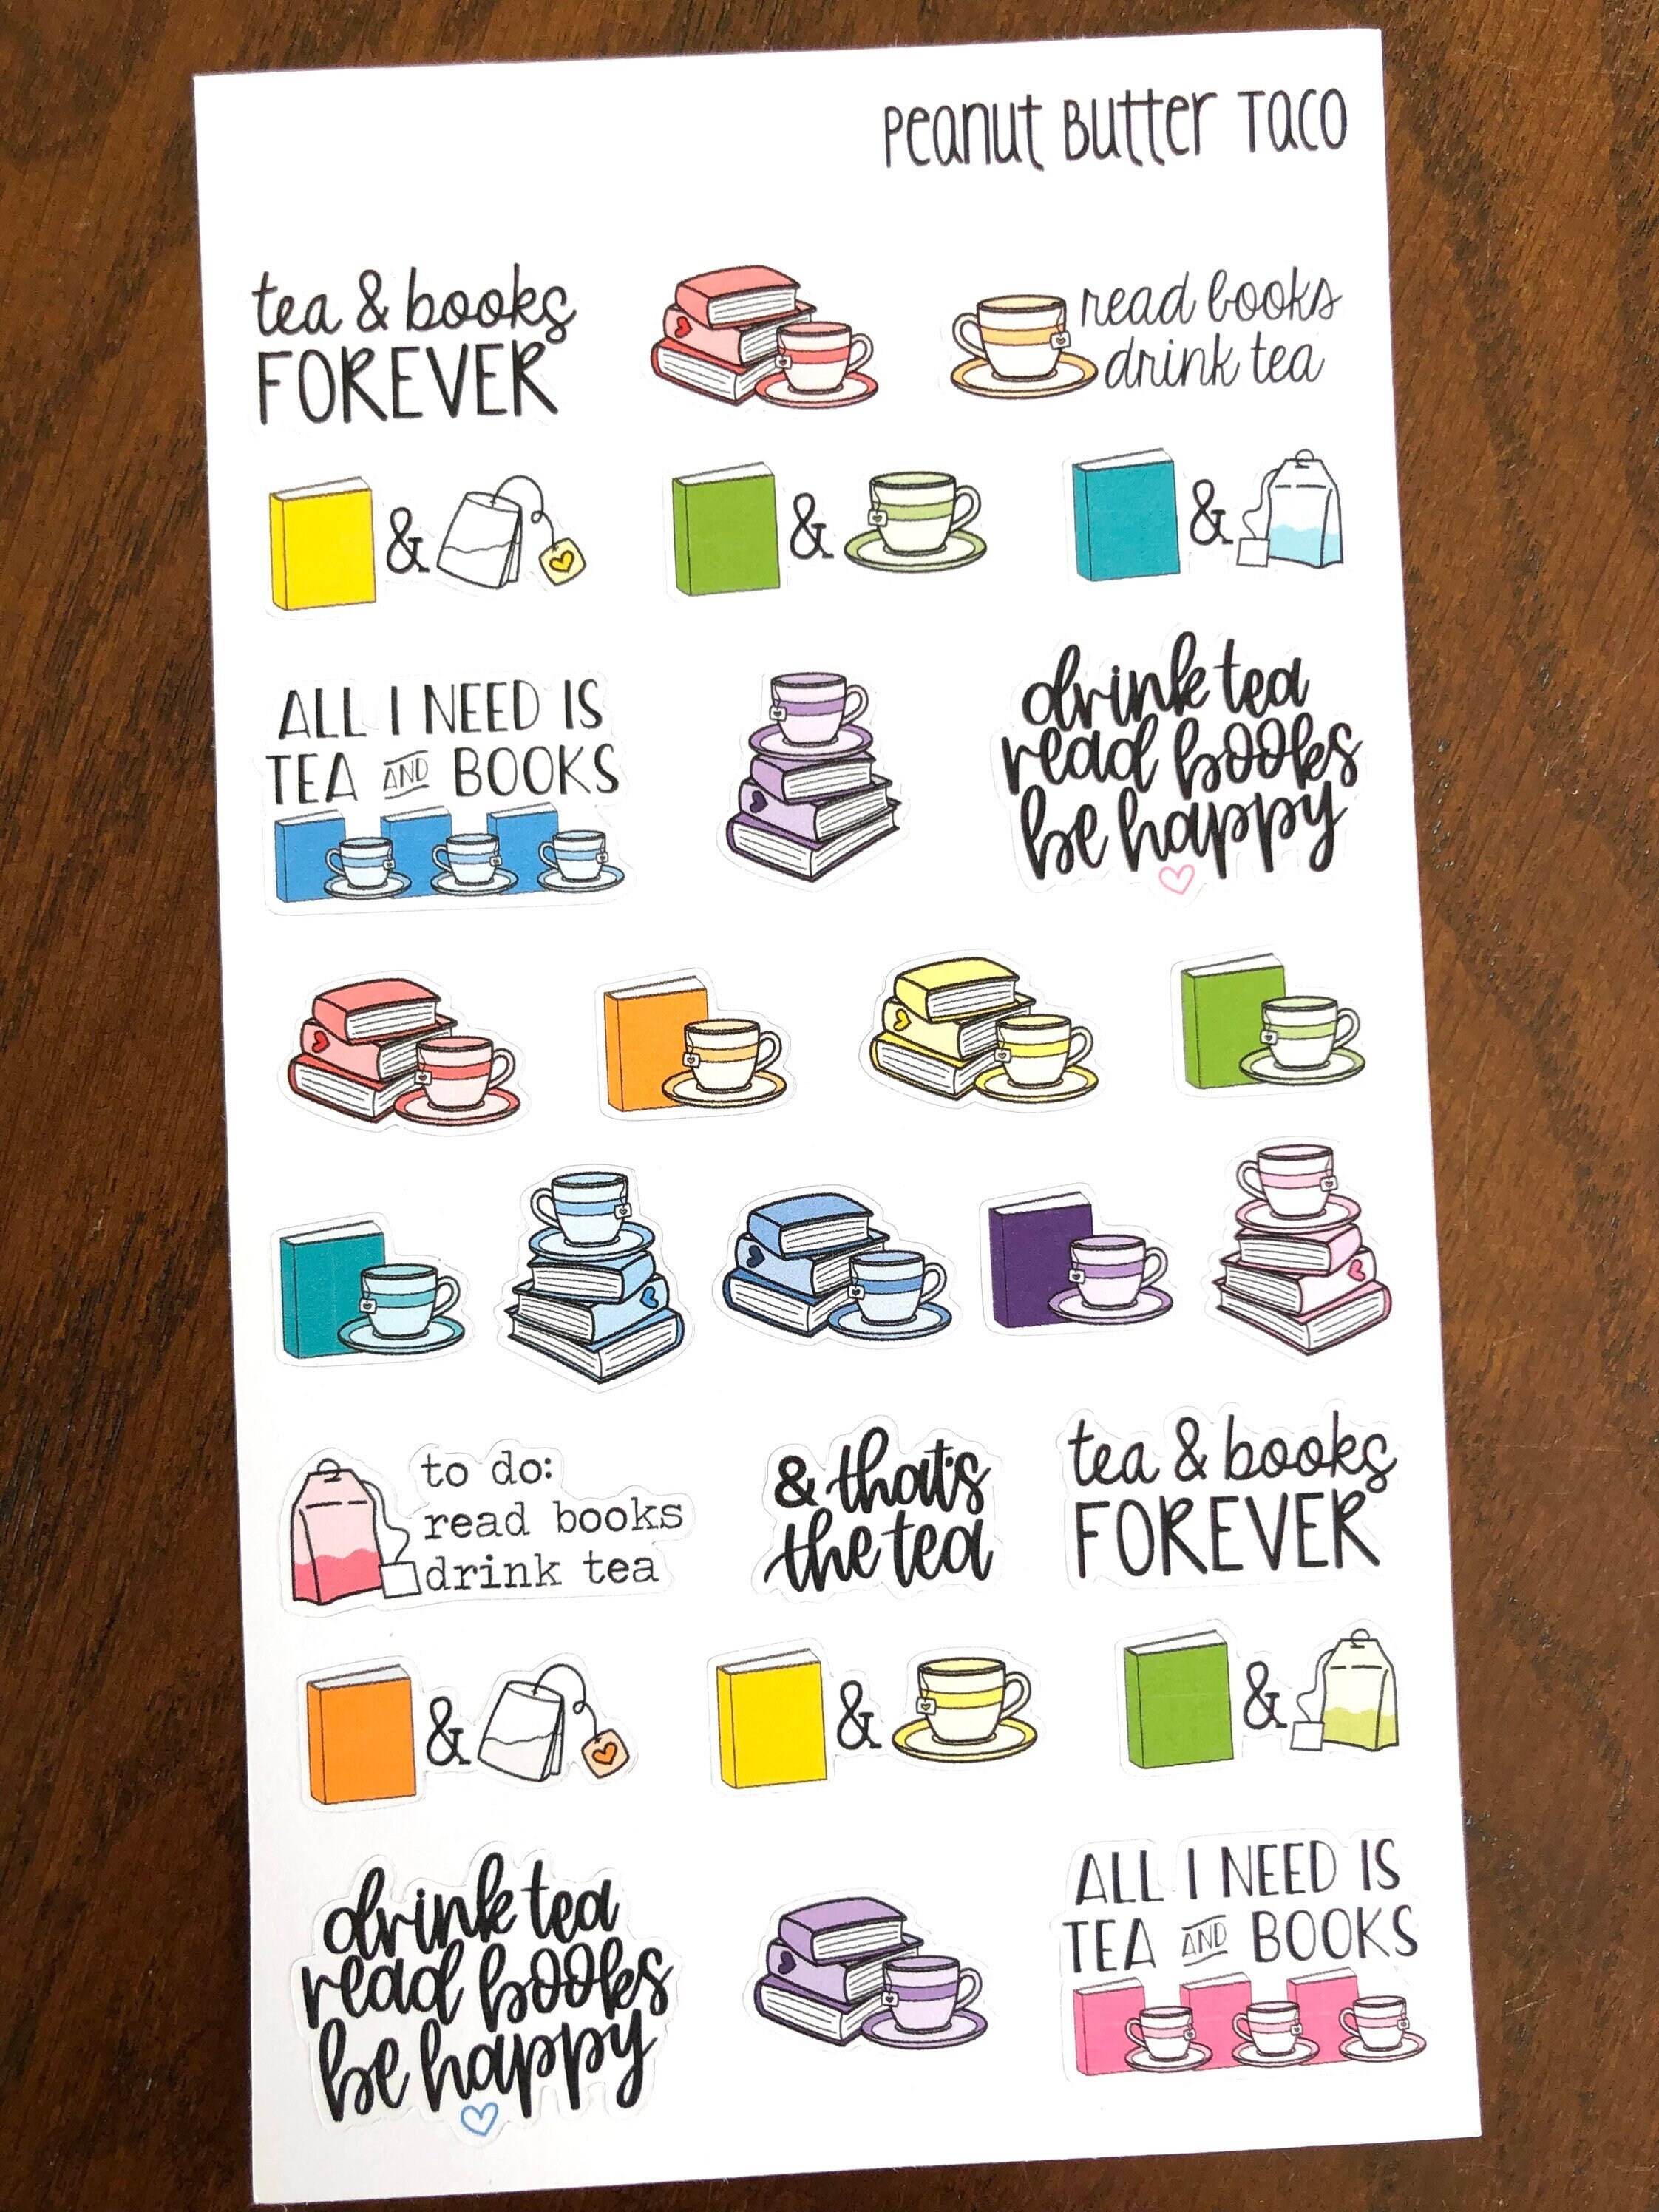 Peanut Butter Taco
tea & books
FOREVER
read books
drink tea
&
&
&
ALL I NEED IS
TEA AND BOOKS
drink tea
read books
be happy
to do:
read books
drink tea
& that's
the tea
tea & books
FOREVER
&
&
&
drink tea
read books
be happy
ALL I NEED IS
TEA AND BOOKS